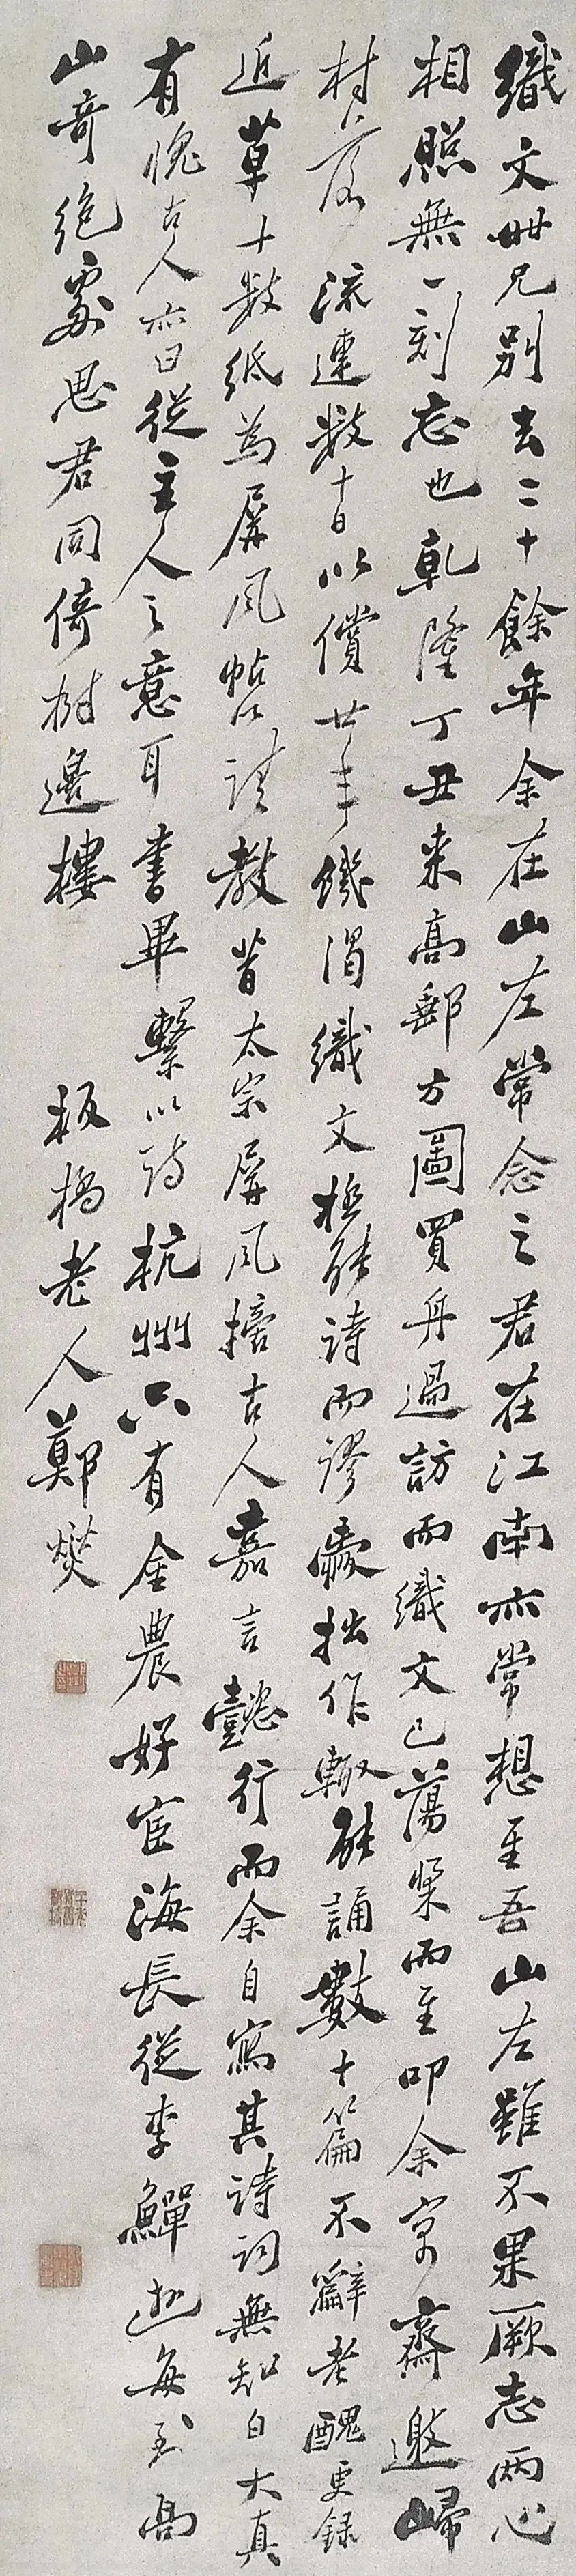 織文世兄別去二十餘年余在山左常念之君在江南亦常想至吾山左雖不果厥志兩心
相照無一刻忘也乾隆丁丑来高郵方圖買舟過訪而織文已蕩槳而至叩余寓齋邀歸
村落流連數十日以償廿年饑渴織文極能詩而謬愛拙作輙能誦數十篇不辭老醜更録
近草十數紙為屏風帖以請教昔太宗屏風搨古人嘉言懿行而余自寫其詩詞無知自大真
有愧古人亦曰從主人之意耳書畢繫以詩杭州只有金農好宦海長從李鱓遊每到高
山奇絶處思君同倚樹邊樓
板橋老人鄭燮